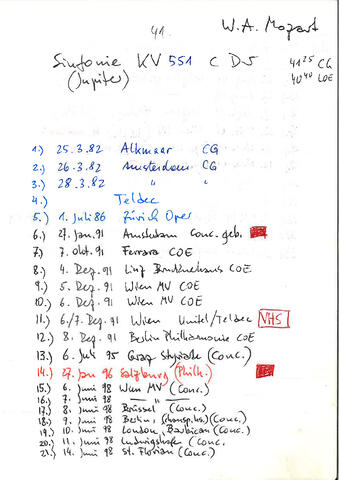 41.
W.A. Mozart
Sinfonie KV 551 C D5
41 25 CG
(Jupiter)
40 40 COE
1.) 25.3.82 Alkmaar CG
2.) 26.3.82 Amsterdam CG
3.) 28.3.82 " "
4.) Teldec
5.) 1. Juli 86 Zürich Oper
6.) 27. Jan. 91 Amsterdam Conc. geb.
7.) 7. Okt. 91 Ferrara COE
8.) 4. Dez. 91 Linz Brucknerhaus COE
9.) 5. Dez. 91 Wien MV COE
10.) 6. Dez. 91 Wien MV COE
11.) 6./7. Dez. 91 Wien Unitel/Teldec VHS
12.) 8. Dez. 91 Berlin Philharmonie COE
13.) 6. Juli 95 Graz Styriarte (Conc.)
14.) 27. Jan 96 Salzburg (Philh.)
15.) 6. Juni 98 Wien MV (Conc.)
16.) 7. Juni 98 — " —
17.) 8. Juni 98 Brüssel (Conc.)
18.) 9. Juni 98 Berlin, (Conc.)
19.) 10. Juni 98 London, Barbican (Conc.)
20.) 11. Juni 98 Ludwigshafen (Conc.
21.) 14. Juni 98 St. Florian (Conc.)